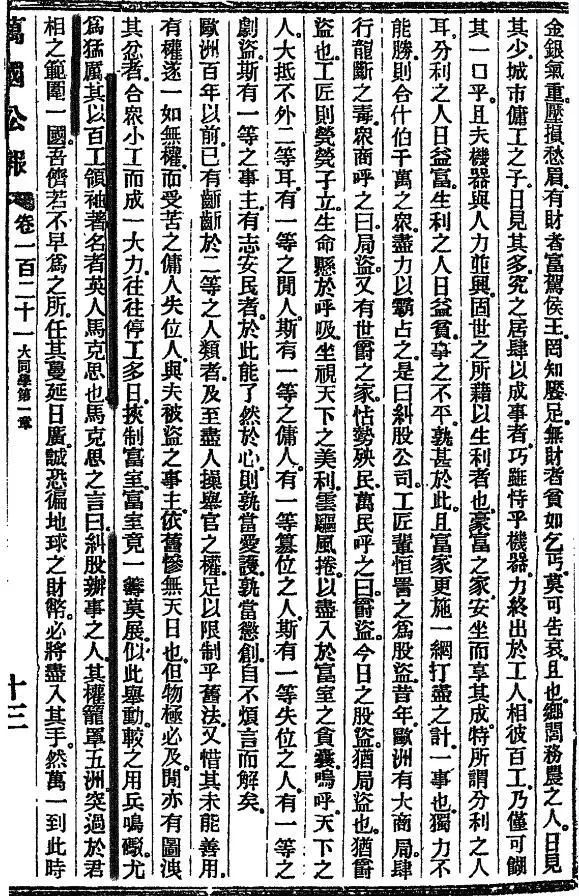 金銀氣重。壓損愁眉。有財者富駕侯王。罔知饜足。無財者貧如乞丐。莫可告哀。且也鄉閭務農之人。日見
其少。城市傭工之子。日見其多。究之居肆以成事者。巧雖恃乎機器。力終出於工人。相彼百工。乃僅可餬
其一口乎。且夫機器與人力並興。固世之所藉以生利者也。豪富之家。安坐而享其成。特所謂分利之人
耳。分利之人日益富。生利之人日益貧。事之不平。孰甚於此。且富家更施一網打盡之計。一事也。獨力不
能勝。則合什伯千萬之眾。盡力以霸占之。是曰糾股公司。工匠輩恒詈之為股盜。昔年歐洲有大商局。肆
行龍斷之毒。眾商呼之曰局盜。又有世爵之家。怙勢殃民。萬民呼之曰爵盜。今日之股盜。猶局盜也。猶爵
盜也。工匠則煢煢孑立。生命懸於呼吸。坐視天下之美利。雲驅風捲。以盡入於富室之貪囊。嗚呼。天下之
人。大抵不外二等耳。有一等之閒人。斯有一等之傭人。有一等篡位之人。斯有一等失位之人。有一等之
劇盜。斯有一等之事主。有志安民者。於此能了然於心。則孰當愛護。孰當懲創。自不煩言而解矣。
歐洲百年以前。已有齗齗於二等之人類者。及至盡人操舉官之權。足以限制乎舊法。又惜其未能善用。
有權遂一如無權。而受苦之傭人失位人。與夫被盜之事主。依舊慘無天日也。但物極必反。閒亦有圖洩
其忿者。合眾小工而成一大力。往往停工多日。挾制富室。富室竟一籌莫展。似此舉動。較之用兵鳴礮。尤
為猛厲。其以百工領袖著名者。英人馬克思也。馬克思之言曰。糾股辦事之人。其權籠罩五洲。突過於君
相之範圍一國。吾儕若不早為之所。任其蔓延日廣。誠恐徧地球之財幣。必將盡入其手。然萬一到此時
萬國公報
卷一百二十一
大同學第一章
十三